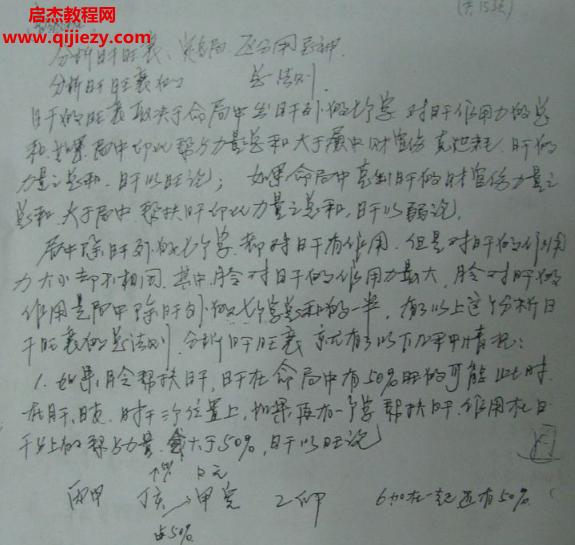 启杰教程网
www.qijiezy.com
(共15题)
分析日干旺衰、类格局、区分用忌神
分析日干旺衰的 总法则
日干的旺衰取决于命局中出日干外的七个字对日干作用力的总
和。如果局中印比帮扶力量总和大于局中财官伤克泄耗日干的
力量之总和，日干以旺论；如果命局中克制日干的财官伤力量之
总和大于局中帮扶日干印比力量之总和，日干以弱论。
局中除日干外的七个字，都对日干有作用，但是对日干的作用
力大小却不相同，其中月令对日干的作用力最大，月令对日干的
作用是局中除日干外的七个字总和的一半，有了以上这个分析日
干旺衰的总法则，分析日干旺衰就有了以下几种情况：
1. 如果月令帮扶日干，日干在命局中有50%旺的可能，此时
在月干、日支、时干三个位置上，如果再有一个字帮扶日干，作用在日
干上的帮扶力量会大于50%，日干以旺论
日元
丙申 丁亥 → 甲寅 乙卯 6加在一起还有50%
占50%